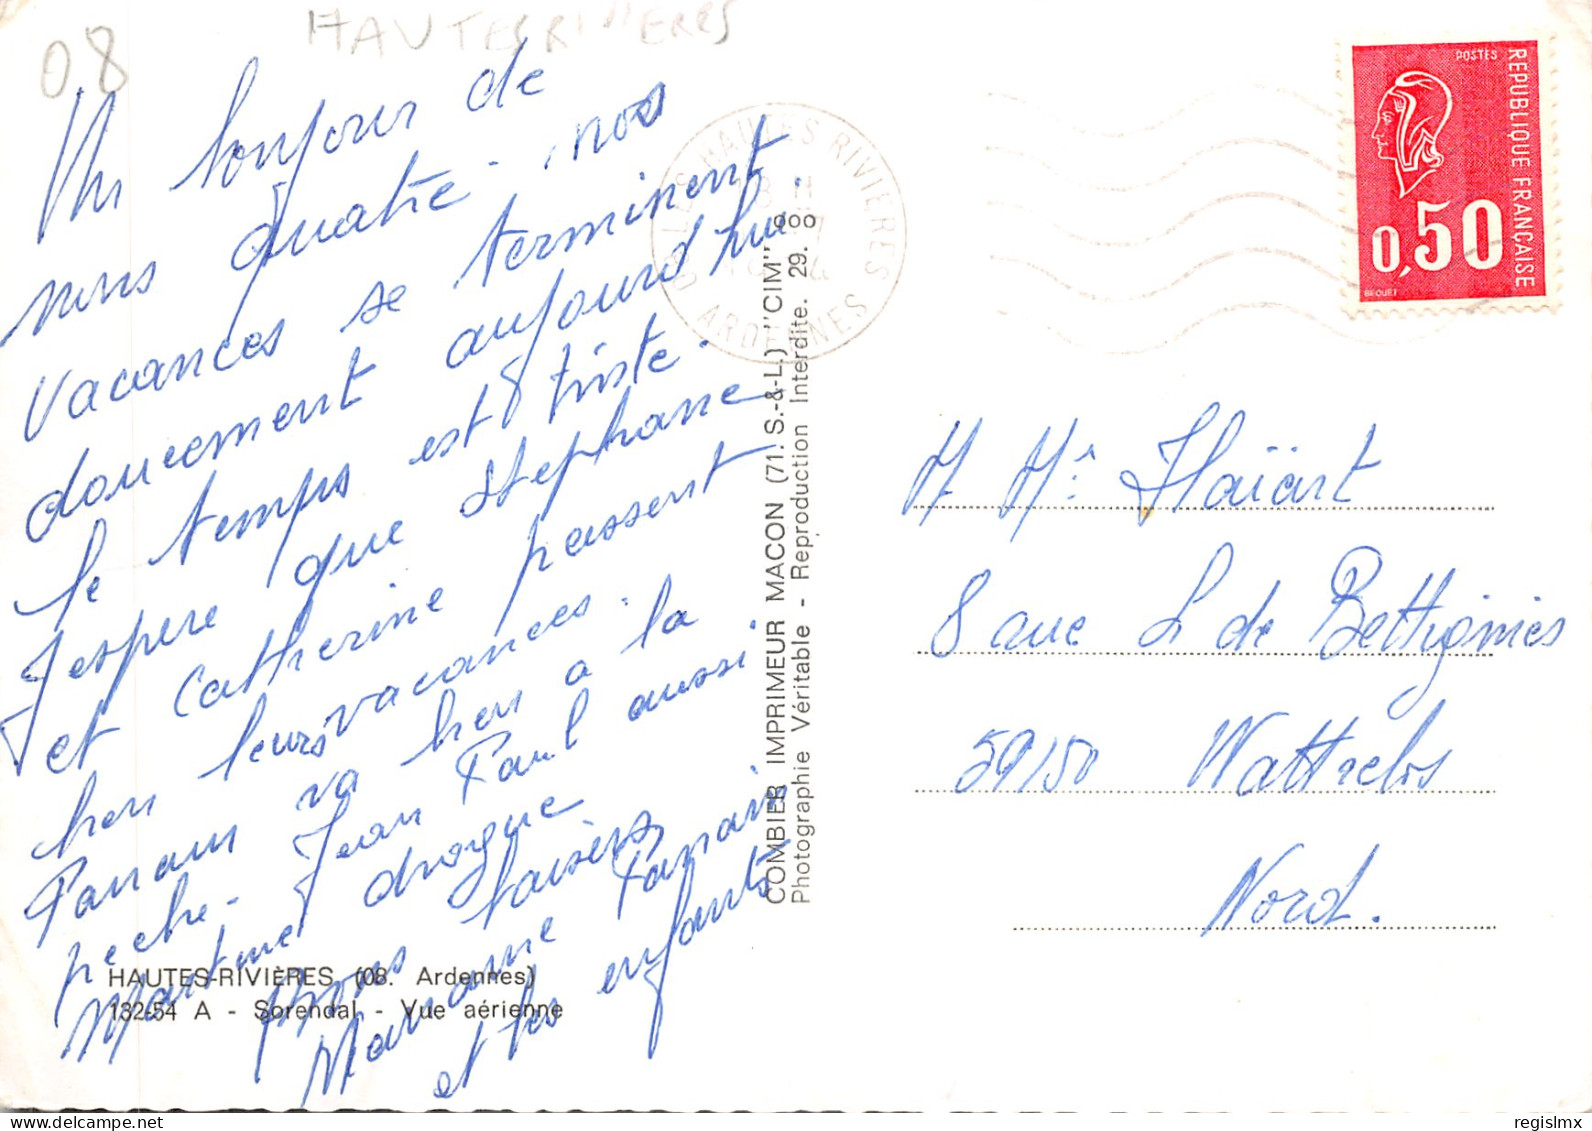 08
HAUTES RIVIERES
Un bonjour de
nous quatre. nos
vacances se terminent
doucement aujourd'hui
le temps est triste.
J'espere que Stephane
et Catherine passent
bien leurs vacances.
va bien a la
peche. Jean Paul aussi.
Martine drogue
Gros baisers
Marianne
et les enfants
HAUTES-RIVIÈRES (08. Ardennes)
132-54 A - Sorendal - Vue aérienne
COMBIER IMPRIMEUR MACON (71. S.-&-L.) "CIM"
Photographie Véritable - Reproduction Interdite. 29.
08 LES HAUTES RIVIERES
18 H
ARDENNES
POSTES
REPUBLIQUE FRANÇAISE
0,50
BEQUET
M. Me Flaïart
8 rue L de Bettignies
59150 Wattrelos
Nord.
regislmx